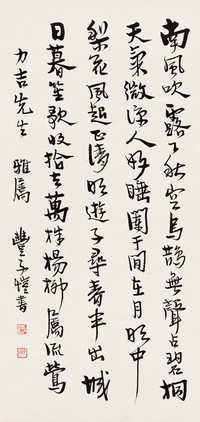 南風吹露下秋空烏鵲無聲占碧桐
天氣微涼人好睡闌干閒在月明中
梨花風起正清明遊子尋春半出城
日暮笙歌收拾去萬株楊柳屬流鶯
力吉先生 雅屬 豐子愷書